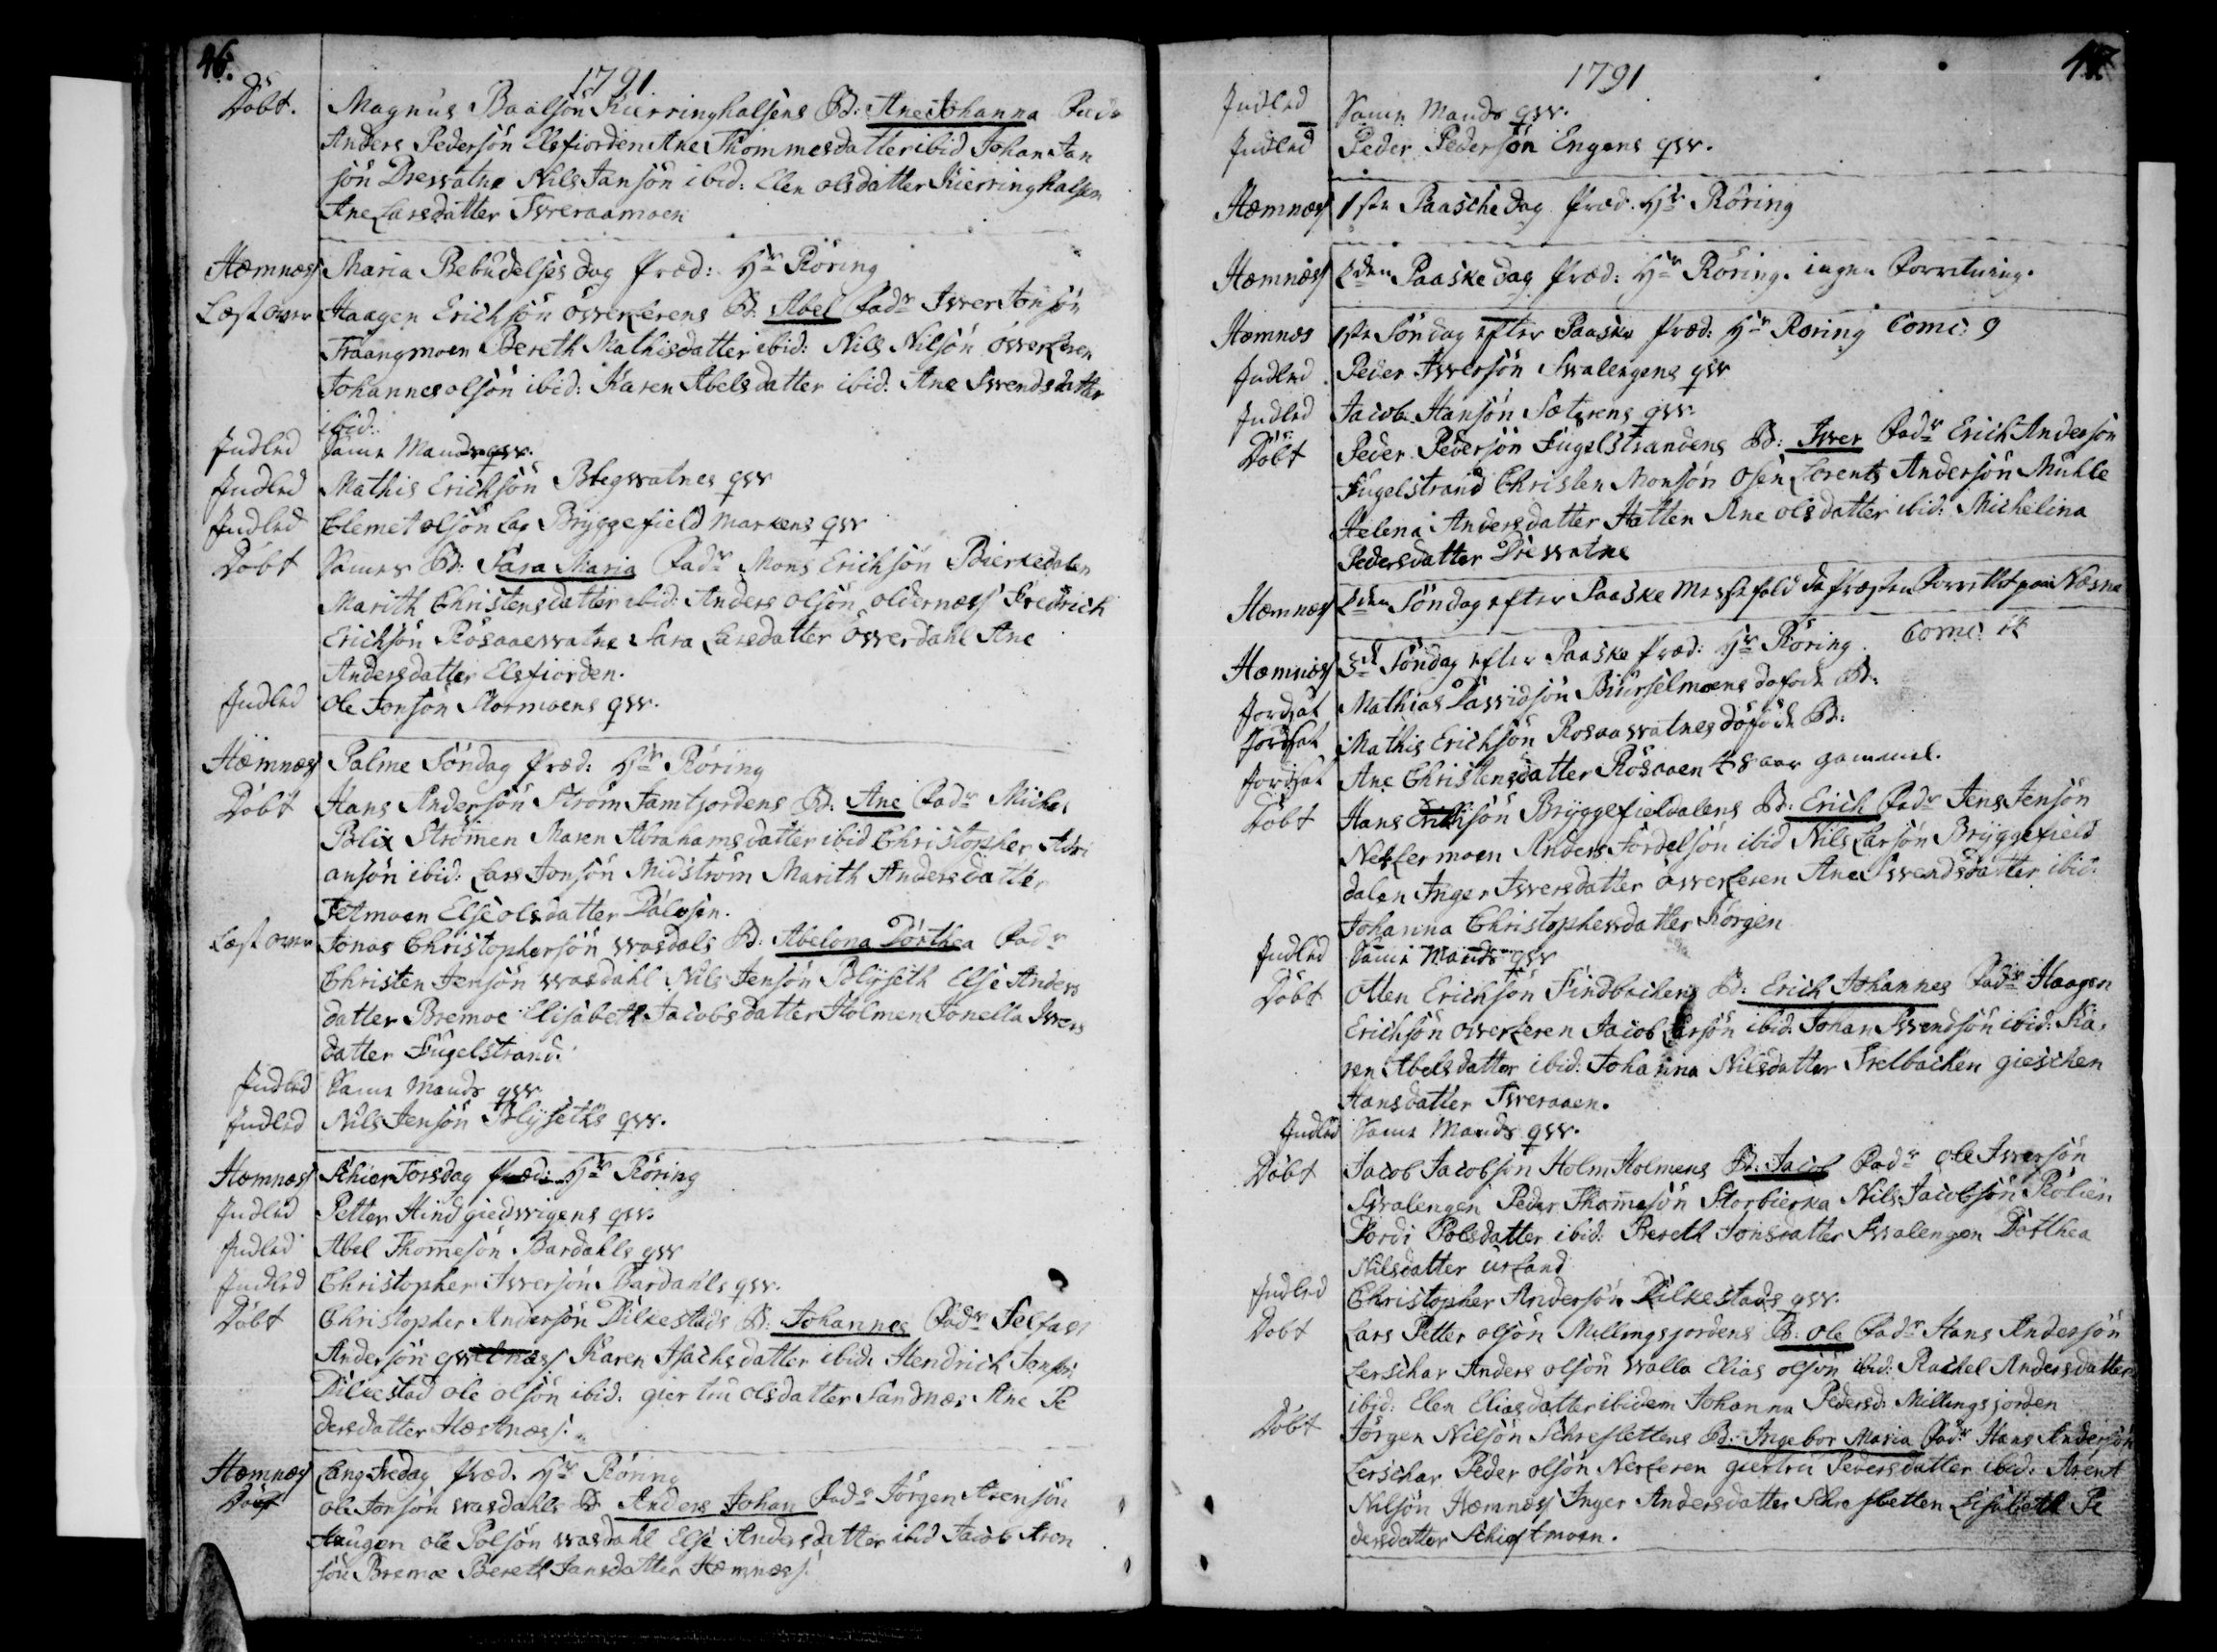 46.
1791
Döbt. Magnus Baalsön Kierringhalsens B: Ane Johanna Fadr
Anders Pedersön Elsfiorden Ane Thommesdatter ibid Johan Jan
sön Drewatne Nils Jansön ibid: Elen olsdatter Kierringhalsen
Ane Larsdatter Tweraamoen
Hæmnæs Maria Bebudelses dag præd: Hr Röring
Læst over Haagen Erichsön öwerlerens B: Abel Fadr Iwer Jonsön
Traangmoen Bereth Mathisdatter ibid: Nils Nilsön öwerleren
Johannes olsön ibid: Karen Abelsdatter ibid: Ane Swendsdatter
ibid:
Indled Same Mands qvv.
Indled Mathis Erichsön Blegvatnes qvv
Indled Clemet olsön Lap Bryggefield markens qvv
Döbt Sames B: Sara Maria Fadr Mons Erichsön Bierkedalen
Marith Christensdatter ibid: Anders olsön oldernæs Fredrich
Erichsön Rösaaewatne Sara Larsdatter öwerdahl Ane
Andersdatter Elsfiorden.
Indled Ole Jonsön Mormoens qvv.
Hæmnæs Palme Söndag præd: Hr Röring
Döbt Hans Andersön Ström Jamtjordens B: Ane Fadr Michel
Blix Strömen Maren Abrahamsdatter ibid Christopher Adri
ansön ibid: Lars Jonsön Midström Marith Andersdatter
Tetmoen Else olsdatter Dalosen.
Læst over Jonas Christophersön wasdals B: Abelona Dorthea Fadr
Christen Jensön wasdahl Nils Jensön Blyseth Else Anders
datter Bremoe Elisabeth Jacobsdatter Holmen Jonella Iwers
datter Fugelstrand.
Indled Same Mands qvv
Indled Nils Jensön Blyseths qvv.
Hæmnæs Schier Torsdag præd: Hr Röring
Indled Petter Hind giedwigens qvv.
Indled Abel Thomesön Bardahls qvv
Indled Christopher Iwersön Bardahls qvv.
Döbt Christopher Andersön Dilkestads B: Johannes Fadr
Andersön Karen Isachsdatter ibid: Hendrich Jonsön
Dilkestad ole olsön ibid: giertru olsdatter Sandnæs Ane Pe
dersdatter Hæstnæs.
Hæmnæs Lang Fredag præd. Hr Röring
Döbt ole Jonsön wasdahls B: Anders Johan Fadr Jörgen Arensön
Haugen ole Polsön wasdahl Else Andersdatter ibid Jacob Aron
sön Bremoe Bereth Jansdatter Hæmnæs.
47.
1791
Indled Same Mands qvv.
Indled Peder Pedersön Engens qvv.
Hæmnæs 1ste Paasche dag præd. Hr Röring
Hæmnæs 2den Paaske dag præd: Hr Röring. ingen Forretning.
Hæmnæs 1ste Söndag efter Paaske præd: Hr Röring Comc: 9
Indled Peder Iwersön Swalengens qvv
Indled Jacob Hansön Sæterens qvv.
Döbt Peder Pedersön Fugelstrandens B: Iwer Fadr Erich Andersön
Fugelstrand Christen Monsön Osen Lorents Andersön Muhle
Helena Andersdatter Hatten Ane olsdatter ibid: Michelina
Pedersdatter Drewatne
Hæmnæs 2den Söndag efter Paaske Messefald da præsten Forrettet paa Næsne
Hæmnæs 3d Söndag efter Paaske præd: Hr Röring. Comc:
Jordsat Mathias Dawidsön Biurselmoens döfödt B:
Jordsat Mathis Erichsön Rosaawatnes döfödt B:
Jordsat Ane Christensdatter Rösaaen 48 aar gammel.
Döbt Hans Bryggefieldalens B: Erich Fadr Jens Jensön
Neslermoen Anders Tordelsön ibid Nils Larsön Bryggefield
dalen Inger Iwersdatter öwerleren Ane Swendsdatter ibid:
Johanna Christophersdatter Korgen
Indled Same Mands qvv
Döbt Otten Erichsön Findbachens B: Erich Johannes Fadr Haagen
Erichsön öwerleren Jacob Larsön ibid: Johan Swendsön ibid: Ka,
ren Abelsdatter ibid: Johanna Nilsdatter Trelbachen gieschen
Hansdatter Tweraaen.
Indled Same Mands qvv.
Döbt Jacob Jacobsön Holm Holmens B: Jacob Fadr ole Iwersön
Swalengen Peder Thomesön Storbierka Nils Jacobsön Rölien
Dordi Polsdatter ibid: Bereth Jonsdatter Swalengen Dorthea
Nilsdatter urland
Indled Christopher Andersön Dilkestads qvv.
Döbt Lars Petter olsön Millingsjordens B: Ole Fadr Hans Andersön
Lerschar Anders olsön walla Elias olsön ibid: Rachel Andersdatter
ibid: Elen Eliasdatter ibidem Johanna Pedersd: Millingsjorden
Döbt Jörgen Nilsön Schreslettens B: Ingebor Maria Fadr Hans Andersön
Lerschar Peder olsön Nerleren giertru Pedersdatter ibid: Arent
Nilsön Hæmnæs Inger Andersdatter Schresletten Lisabeth Pe
dersdatter Schieftmoen.